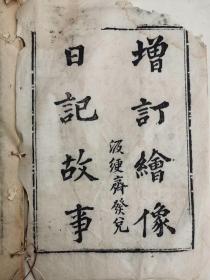 增訂繪像
日記故事
汲綆齋發兌